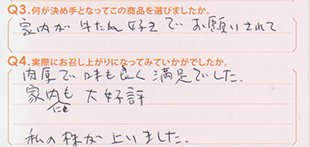 Q3.何が決め手となってこの商品を選びましたか。
家内が牛たん好きでお願いされて
Q4.実際にお召し上がりになってみていかがでしたか。
肉厚で味も良く満足でした。
家内にも大好評
私の株が上りました。